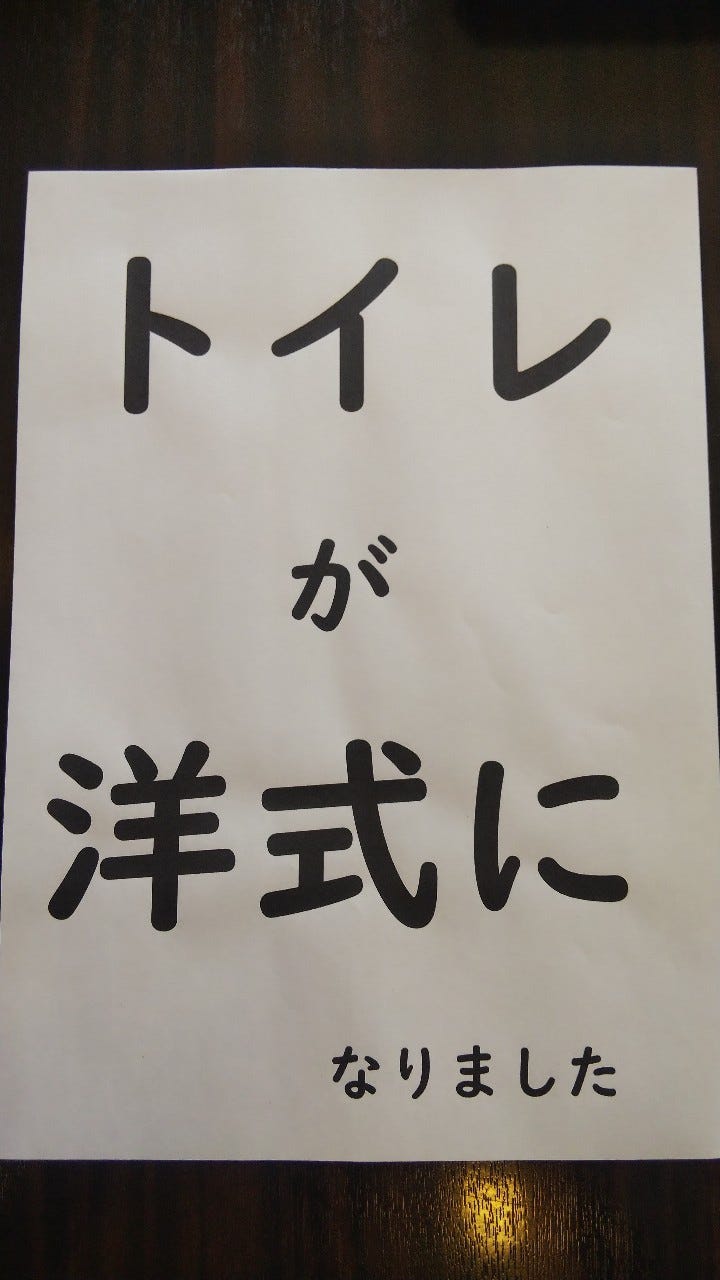 トイレ
が
洋式に
なりました